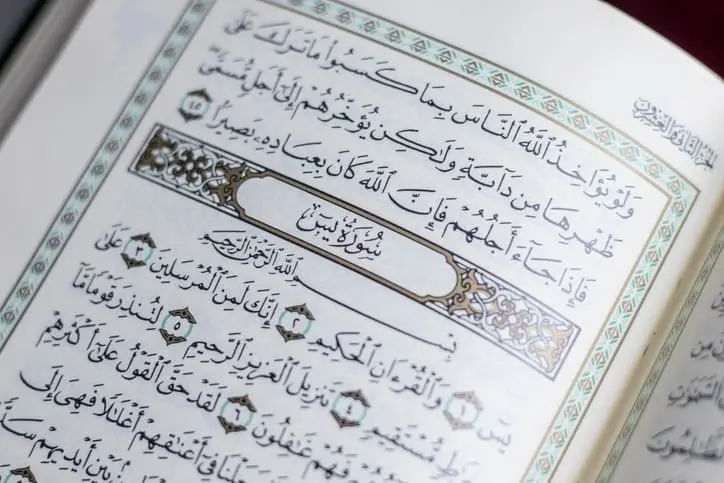 الجزء الثاني والعشرون
وَلَوْ يُؤَاخِذُ ٱللَّهُ ٱلنَّاسَ بِمَا كَسَبُوا۟ مَا تَرَكَ عَلَىٰ
ظَهْرِهَا مِن دَآبَّةٍ وَلَٰكِن يُؤَخِّرُهُمْ إِلَىٰٓ أَجَلٍ مُّسَمًّى
فَإِذَا جَآءَ أَجَلُهُمْ فَإِنَّ ٱللَّهَ كَانَ بِعِبَادِهِۦ بَصِيرًۢا ٤٥
سُورَةُ يسٓ
بِسْمِ ٱللَّهِ ٱلرَّحْمَٰنِ ٱلرَّحِيمِ
يسٓ ١ وَٱلْقُرْءَانِ ٱلْحَكِيمِ ٢ إِنَّكَ لَمِنَ ٱلْمُرْسَلِينَ ٣ عَلَىٰ
مُّسْتَقِيمٍ ٤ تَنزِيلَ ٱلْعَزِيزِ ٱلرَّحِيمِ ٥ لِتُنذِرَ قَوْمًا مَّآ
فَهُمْ غَٰفِلُونَ ٦ لَقَدْ حَقَّ ٱلْقَوْلُ عَلَىٰٓ أَكْثَرِهِمْ
فِىٓ أَعْنَٰقِهِمْ أَغْلَٰلًا فَهِىَ إِلَى
بَيْنِ أَيْدِيهِمْ
مِن